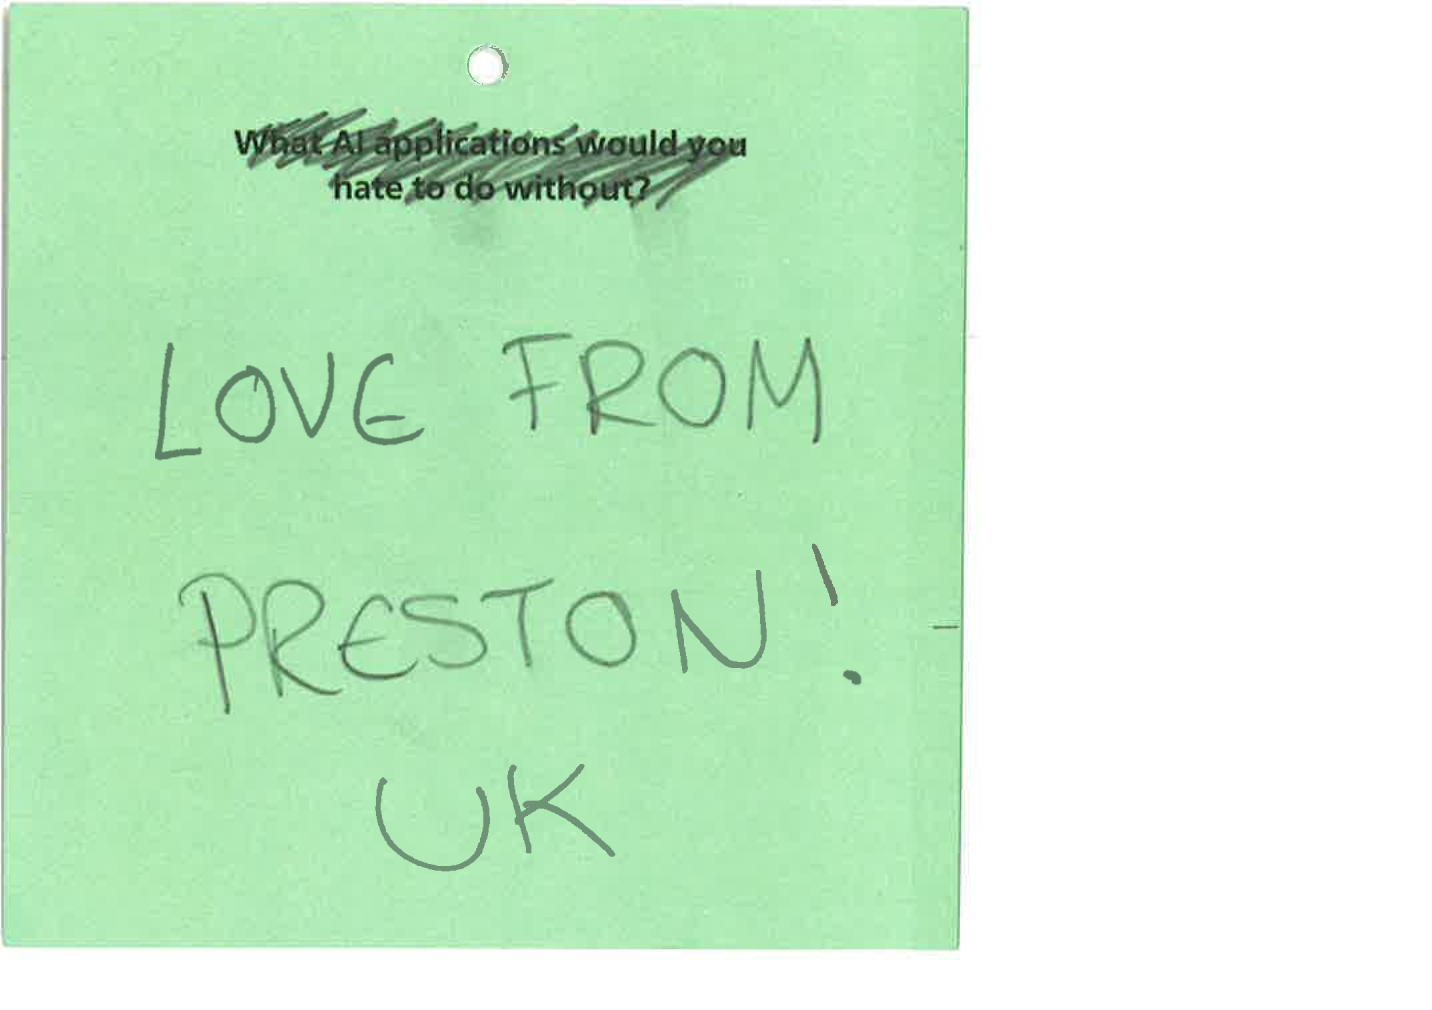 What AI applications would you
hate to do without?
LOVE FROM
PRESTON!
UK